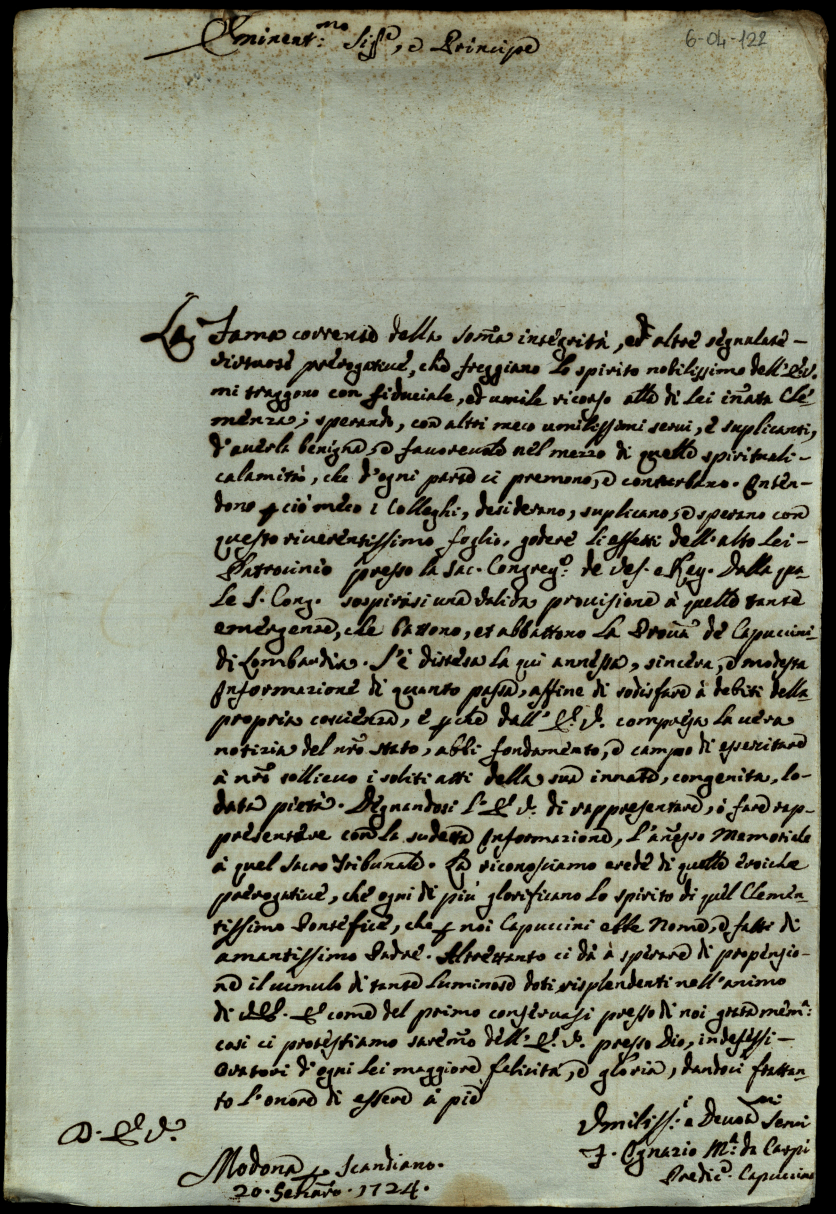 Eminent:mo Sig.re, e Principe
6-04-122
La Fama corrente della som̃a integrità, ed altre segnalate
virtuose prerogative, che freggiano lo spirito nobilissimo dell'E.V.
mi traggono con fiduciale, ed umile ricorso alla di Lei iñata Cle-
menza; sperando, con altri meco umilissimi servi, e suplicanti,
d'averla benigna, e favorevole nel mezzo di quelle spirituali
calamità, che d'ogni parte ci premono, e conturbano. Inten-
dono p ciò meco i Colleghi, desiderano, suplicano, e sperano con
questo riverentissimo foglio, godere li effetti dell'alto Lei
Patrocinio presso la Sac. Congreg.e de Ves. e Reg. Dalla qua-
le S. Cong. sospirasi una valida provisione à quelle tante
emergenze, che battono, et abbattono la Prov.a de Capuccini
di Lombardia. S'è distesa la qui annessa, sincera, e modesta
Informazione di quanto passa, affine di sodisfare à debiti della
propria coscienza, e p che dall'E.V. compresa la vera
notizia del nr̃o stato, abbi fondamento, e campo di essercitare
à nr̃o sollievo i soliti atti della sua innata, congenita, lo-
data pietà. Degnandosi l'E.V. di rappresentare, ò fare rap-
presentare con la sudetta Informazione, l'añesso Memoriale
à quel Sacro Tribunale. La riconosciamo erede di quelle eroiche
prerogative, che ogni dì più glorificano lo spirito di quel Clemen-
tissimo Pontefice, che p noi Capuccini ebbe Nome, e fatti di
amantissimo Padre. Altrettanto ci dà à sperare di propensio-
ne il cumulo di tante luminose doti, risplendenti nell'animo
di V.E. E come del primo conservasi presso di noi grata mem.a:
così ci protestiamo sarem̃o dell'E.V. presso Dio, indefessi
Oratori d'ogni Lei maggiore felicità, e gloria, dandoci frattan-
to l'onore di essere à piè
D. E. V.
Umiliss.i e Devot.mi Servi
F. Ignazio M.a da Carpi
Predic.e Capuccino
Modona p Scandiano.
20. Gen̄aro. 1724.